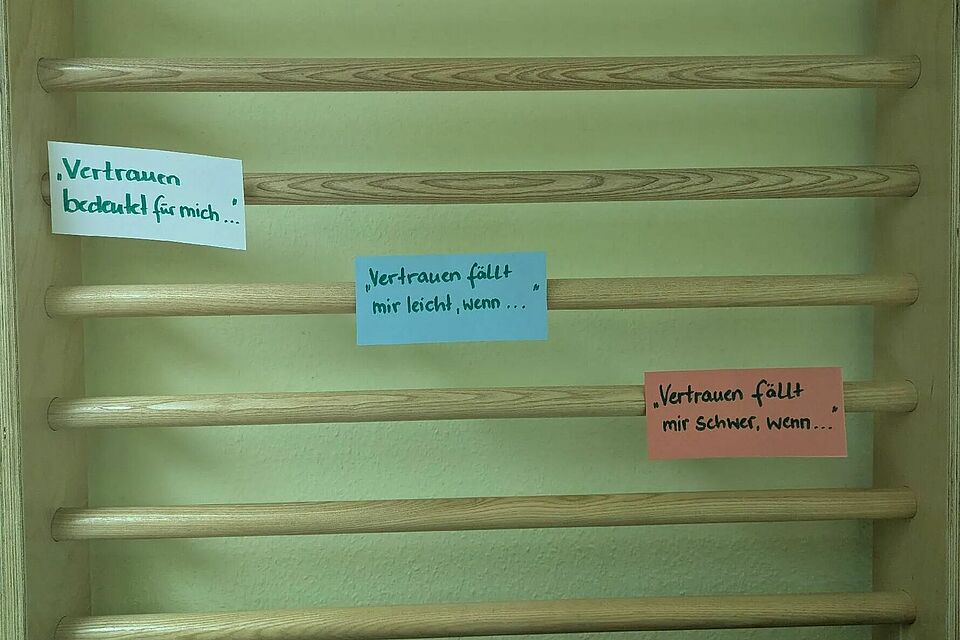 „Vertrauen
bedeutet für mich..."
„Vertrauen fällt
mir leicht, wenn..."
„Vertrauen fällt
mir schwer, wenn..."